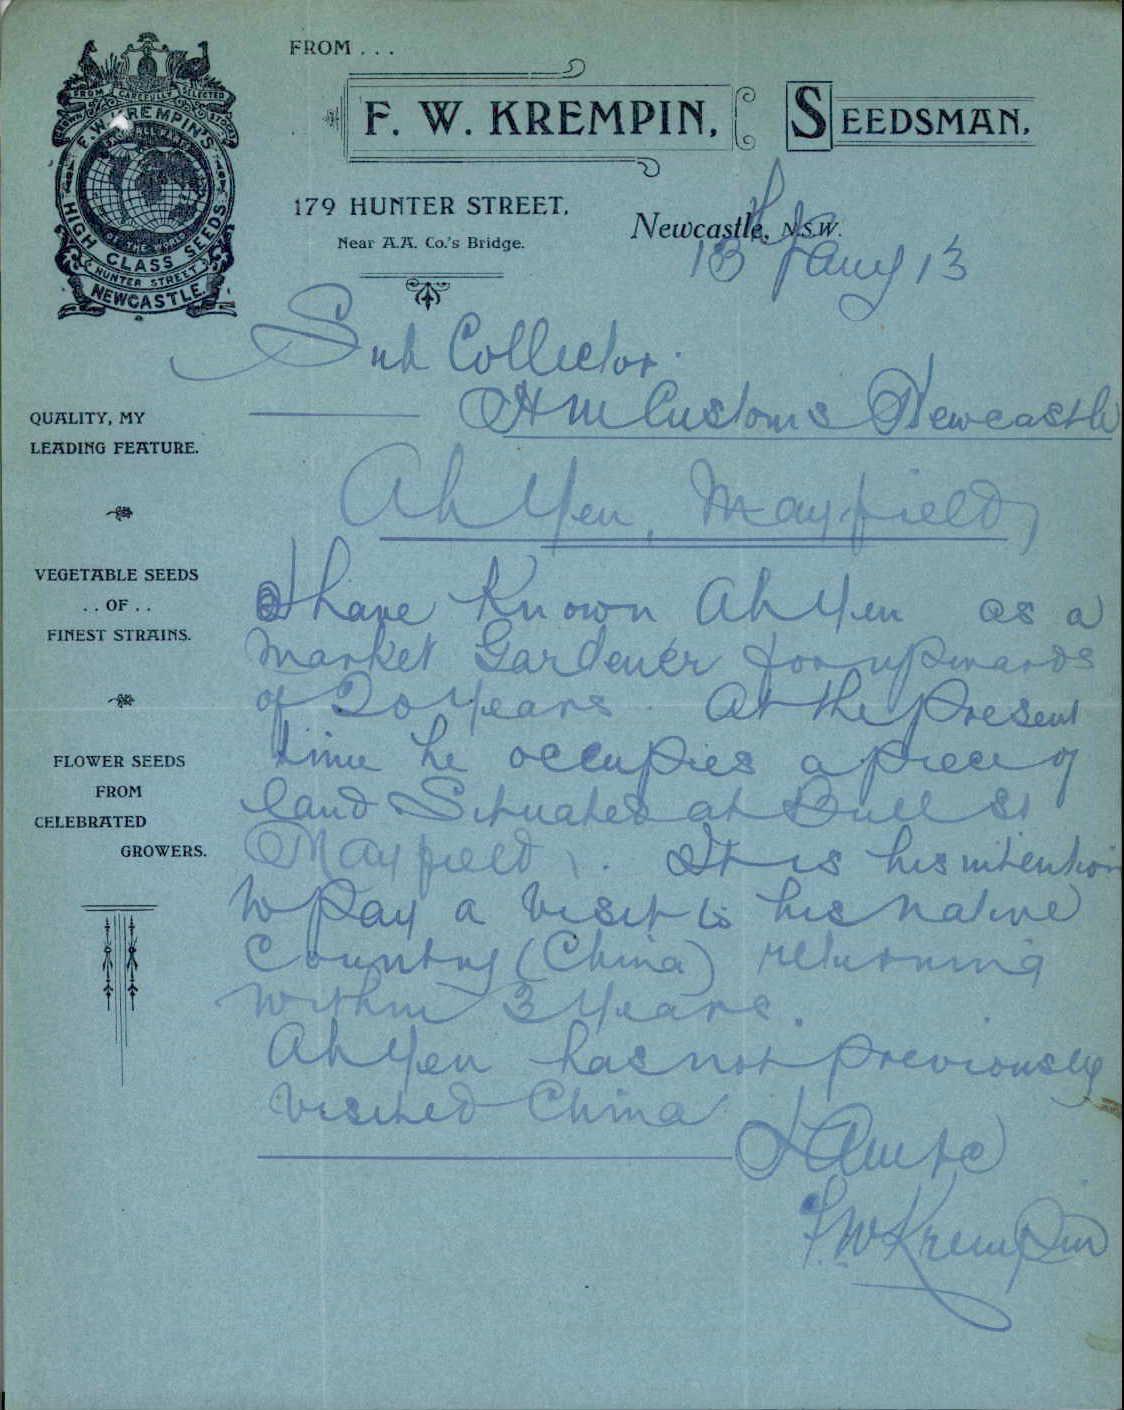 FROM . . .
F. W. KREMPIN, SEEDSMAN,
179 HUNTER STREET,
Near A.A. Co.'s Bridge.
Newcastle, N.S.W.
FROM CAREFULLY SELECTED
F. W. KREMPIN'S
HIGH CLASS SEEDS
HUNTER STREET
NEWCASTLE.
13th Jany 13
Sub Collector.
HM Customs Newcastle
Ah Yen, Mayfield
I have Known Ah Yen as a
Market Gardener for upwards
of 20 years. At the present
time he occupies a piece of
land Situated at Bull St
Mayfield. It is his intention
to pay a visit to his native
Country (China) returning
within 3 years.
Ah Yen has not previously
visited China
I Am to
F. W Krempin
QUALITY, MY
LEADING FEATURE.
VEGETABLE SEEDS
. . OF . .
FINEST STRAINS.
FLOWER SEEDS
FROM
CELEBRATED
GROWERS.